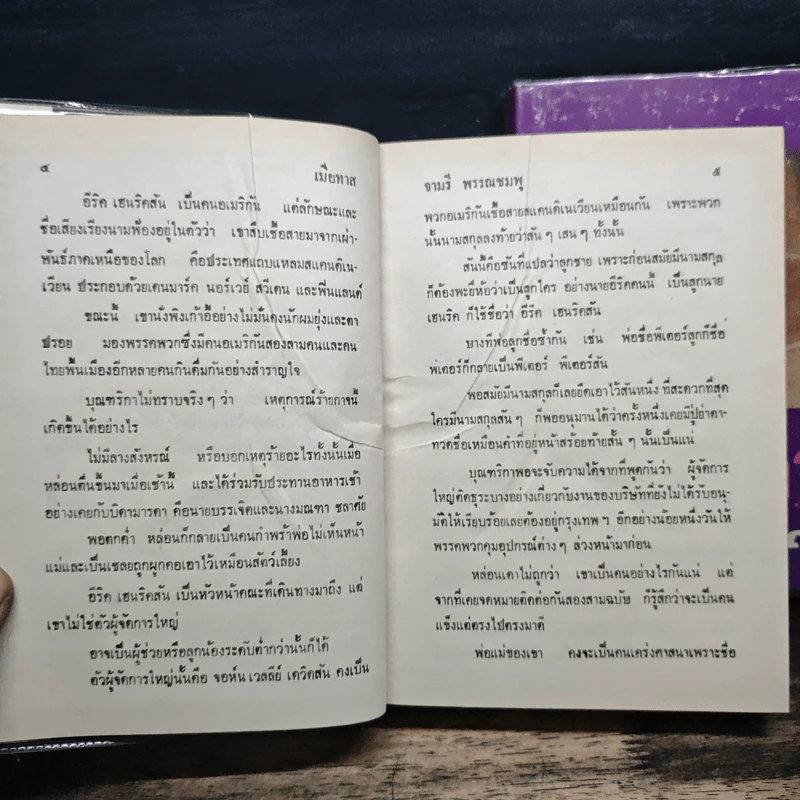 ๔
เมียทาส
อีริค เฮนริคสัน เป็นคนอเมริกัน แต่ลักษณะและ
ชื่อเสียงเรียงนามฟ้องอยู่ในตัวว่า เขาสืบเชื้อสายมาจากเผ่า-
พันธุ์ภาคเหนือของโลก คือประเทศแถบแหลมสแคนดิเน-
เวียน ประกอบด้วยเดนมาร์ค นอร์เวย์ สวีเดน และฟินแลนด์
ขณะนี้ เขานั่งพิงเก้าอี้อย่างไม่มั่นคงนักผมยุ่งและตา
ปรอย มองพรรคพวกซึ่งมีคนอเมริกันสองสามคนและคน
ไทยพื้นเมืองอีกหลายคนกินดื่มกันอย่างสำราญใจ
บุณฑริกาไม่ทราบจริง ๆ ว่า เหตุการณ์ร้ายกาจนี้
เกิดขึ้นได้อย่างไร
ไม่มีลางสังหรณ์ หรือบอกเหตุร้ายอะไรทั้งนั้นเมื่อ
หล่อนตื่นขึ้นมาเมื่อเช้านี้ และได้ร่วมรับประทานอาหารเช้า
อย่างเคยกับบิดามารดา คือนายบรรเจิดและนางมณฑา ชลาศัย
พอตกค่ำ หล่อนก็กลายเป็นคนกำพร้าพ่อไม่เห็นหน้า
แม่และเป็นเชลยถูกผูกคอเอาไว้เหมือนสัตว์เลี้ยง
อีริค เฮนริคสัน เป็นหัวหน้าคณะที่เดินทางมาถึง แต่
เขาไม่ใช่ตัวผู้จัดการใหญ่
อาจเป็นผู้ช่วยหรือลูกน้องระดับต่ำกว่านั้นก็ได้
ตัวผู้จัดการใหญ่นั้นคือ จอห์น เวสลีย์ เดวิดสัน คงเป็น
จามรี พรรณชมพู
๕
พวกอเมริกันเชื้อสายสแคนดิเนเวียนเหมือนกัน เพราะพวก
นั้นนามสกุลลงท้ายว่าสัน ๆ เสน ๆ ทั้งนั้น
สันนี้คือซันที่แปลว่าลูกชาย เพราะก่อนสมัยมีนามสกุล
ก็ต้องพะยี่ห้อว่าเป็นลูกใคร อย่างนายอีริคคนนี้ เป็นลูกนาย
เฮนริค ก็ใช้ชื่อว่า อีริค เฮนริคสัน
บางทีพ่อลูกชื่อซ้ำกัน เช่น พ่อชื่อพีเตอร์ลูกก็ชื่อ
พีเตอร์ก็กลายเป็นพีเตอร์ พีเตอร์สัน
พอสมัยมีนามสกุลก็เลยยึดเอาไว้สันหนึ่ง ที่สะดวกที่สุด
ใครมีนามสกุลสัน ๆ ก็พออนุมานได้ว่าครั้งหนึ่งเคยมีปู่ย่าตา-
ทวดชื่อเหมือนคำที่อยู่หน้าสร้อยท้ายสั้น ๆ นั้นเป็นแน่
บุณฑริกาพอจะจับความได้จากที่พูดกันว่า ผู้จัดการ
ใหญ่ติดธุระบางอย่างเกี่ยวกับงานของบริษัทที่ยังไม่ได้รับอนุ-
มัติให้เรียบร้อยเลยต้องอยู่กรุงเทพ ฯ อีกอย่างน้อยหนึ่งวันให้
พรรคพวกคุมอุปกรณ์ต่าง ๆ ล่วงหน้ามาก่อน
หล่อนเดาไม่ถูกว่า เขาเป็นคนอย่างไรกันแน่ แต่
จากที่เคยจดหมายติดต่อกันสองสามฉบับ ก็รู้สึกว่าจะเป็นคน
แข็งแต่ตรงไปตรงมาดี
พ่อแม่ของเขา คงจะเป็นคนเคร่งศาสนาเพราะชื่อ